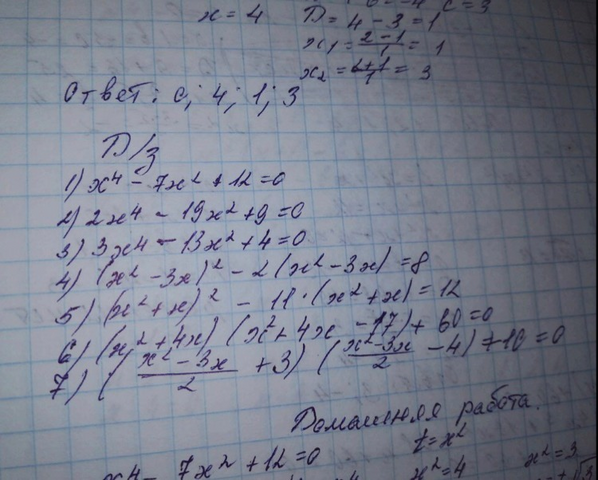 x = 4 D = 4 - 3 = 1
x₁ = = 1
x₂ = = 3
Ответ: 0; 4; 1; 3
Д/з
1) x⁴ - 7x² + 12 = 0
2) 2x⁴ - 19x² + 9 = 0
3) 3x⁴ - 13x² + 4 = 0
4) (x² - 3x)² - 2(x² - 3x) = 8
5) (x² + x)² - 11·(x² + x) = 12
6) (x² + 4x)(x² + 4x - 17) + 60 = 0
7) ((x² - 3x)/2 + 3)((x² - 3x)/2 - 4) + 10 = 0
Домашняя работа.
t = x²
x⁴ - 7x² + 12 = 0 x² = 4 x² = 3